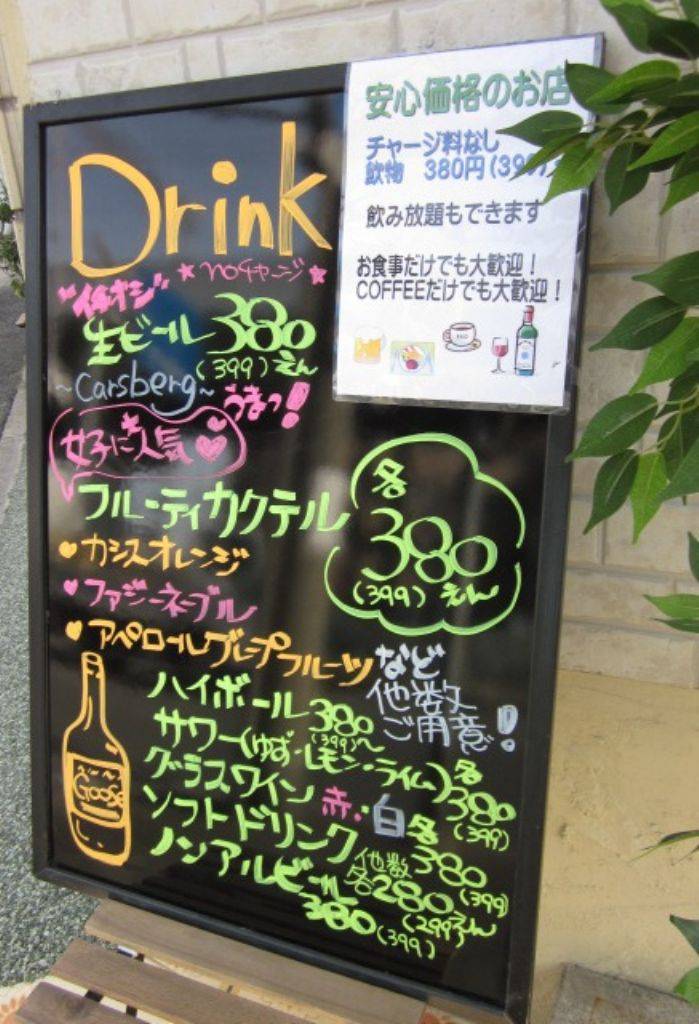 Drink
★noチャージ★
"イチオシ"
生ビール 380
(399)えん
~Carsberg~ うまっ!
女子に人気♥
フルーティカクテル
各
380
(399)えん
♥カシスオレンジ
♥ファジーネーブル
♥アペロールグレープフルーツ
など
他数
ご用意!
ハイボール 380
(399)~
サワー(ゆず・レモン・ライム)各
380
(399)
グラスワイン 赤・白 各
380
(399)
ソフトドリンク 他数
各280
(299)えん
ノンアルビール
380
(399)
Goose
安心価格のお店
チャージ料なし
飲物 380円(399
飲み放題もできます
お食事だけでも大歓迎!
COFFEEだけでも大歓迎!